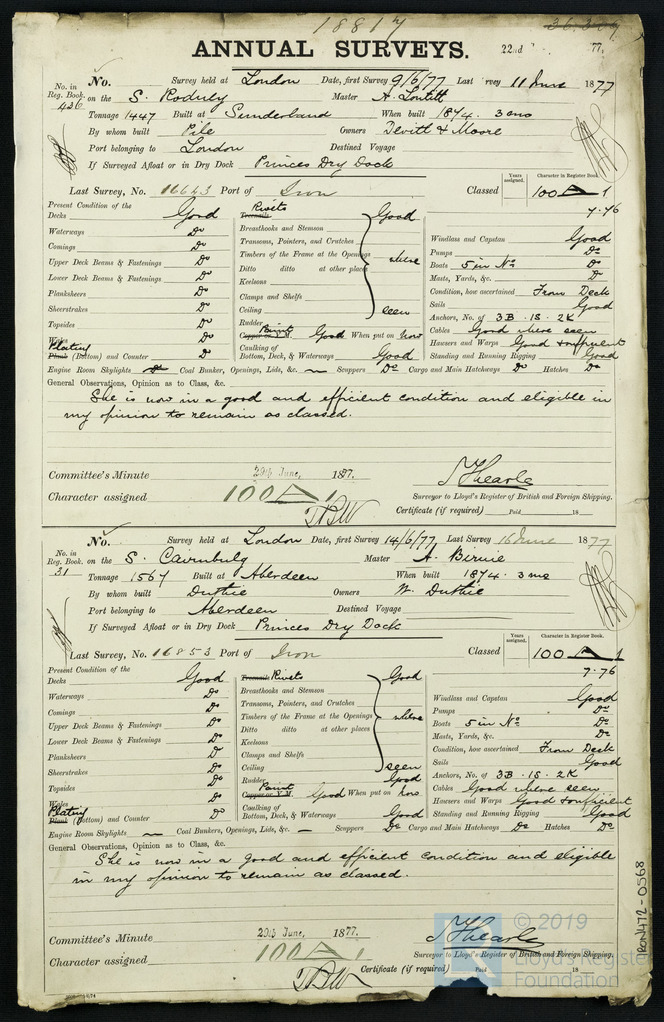 18817
ANNUAL SURVEYS.
22nd 77.
No. Survey held at London Date, first Survey 9/6/77 Last Survey 11 June 1877
No. in Reg. Book. 426 on the S. Rodney Master A. Loutitt
Tonnage 1447 Built at Sunderland When built 1874. 3 mo
By whom built Pile Owners Devitt & Moore
Port belonging to London Destined Voyage
If Surveyed Afloat or in Dry Dock Princes Dry Dock
Years assigned. Character in Register Book.
Last Survey, No. 16643 Port of Iron Classed 100 A 1
7.76
Present Condition of the
Decks Good
Waterways Do
Comings Do
Upper Deck Beams & Fastenings Do
Lower Deck Beams & Fastenings Do
Planksheers Do
Sheerstrakes Do
Topsides Do
Wales
Plating
Plank (Bottom) and Counter Do
Rivets
Treenails Good
Breasthooks and Stemson
Transoms, Pointers, and Crutches
Timbers of the Frame at the Openings where
Ditto ditto at other places
Keelsons
Clamps and Shelfs
Ceiling seen
Rudder
Paint
Copper or Y.M. Good When put on now
Caulking of
Bottom, Deck, & Waterways Good
Windlass and Capstan Good
Pumps Do
Boats 5 in No Do
Masts, Yards, &c. Do
Condition, how ascertained From Deck
Sails Good
Anchors, No. of 3B. 1S. 2K
Cables Good where seen
Hawsers and Warps Good & sufficient
Standing and Running Rigging Good
Engine Room Skylights Coal Bunkers, Openings, Lids, &c. Scuppers Do Cargo and Main Hatchways Do Hatches Do
General Observations, Opinion as to Class, &c.
She is now in a good and efficient condition and eligible in
my opinion to remain as classed.
Committee's Minute 29th June, 1877.
Character assigned 100 A 1
TBW
J Hearle
Surveyor to Lloyd's Register of British and Foreign Shipping.
Certificate (if required) Paid 18
No. Survey held at London Date, first Survey 14/6/77 Last Survey 16 June 1877
No. in Reg. Book. 31 on the S. Cairnbulg Master A. Birnie
Tonnage 1567 Built at Aberdeen When built 1874. 3 mo
By whom built Duthie Owners W. Duthie
Port belonging to Aberdeen Destined Voyage
If Surveyed Afloat or in Dry Dock Princes Dry Dock
Years assigned. Character in Register Book.
Last Survey, No. 16853 Port of Iron Classed 100 A 1
7.76
Present Condition of the
Decks Good
Waterways Do
Comings Do
Upper Deck Beams & Fastenings Do
Lower Deck Beams & Fastenings Do
Planksheers Do
Sheerstrakes Do
Topsides Do
Wales
Plating
Plank (Bottom) and Counter Do
Treenails Rivets Good
Breasthooks and Stemson
Transoms, Pointers, and Crutches
Timbers of the Frame at the Openings where
Ditto ditto at other places
Keelsons
Clamps and Shelfs
Ceiling seen
Rudder Good
Paint
Copper or Y.M. Good When put on now
Caulking of
Bottom, Deck, & Waterways Good
Windlass and Capstan Good
Pumps Do
Boats 5 in No Do
Masts, Yards, &c. Do
Condition, how ascertained From Deck
Sails Good
Anchors, No. of 3B. 1S. 2K
Cables Good where seen
Hawsers and Warps Good & sufficient
Standing and Running Rigging Good
Engine Room Skylights Coal Bunkers, Openings, Lids, &c. Scuppers Do Cargo and Main Hatchways Do Hatches Do
General Observations, Opinion as to Class, &c.
She is now in a good and efficient condition and eligible
in my opinion to remain as classed.
Committee's Minute 29th June, 1877.
Character assigned 100 A 1
TBW
J Hearle
Surveyor to Lloyd's Register of British and Foreign Shipping.
Certificate (if required) Paid 18
LON472-0568
© 2019
Lloyd's Register
Foundation